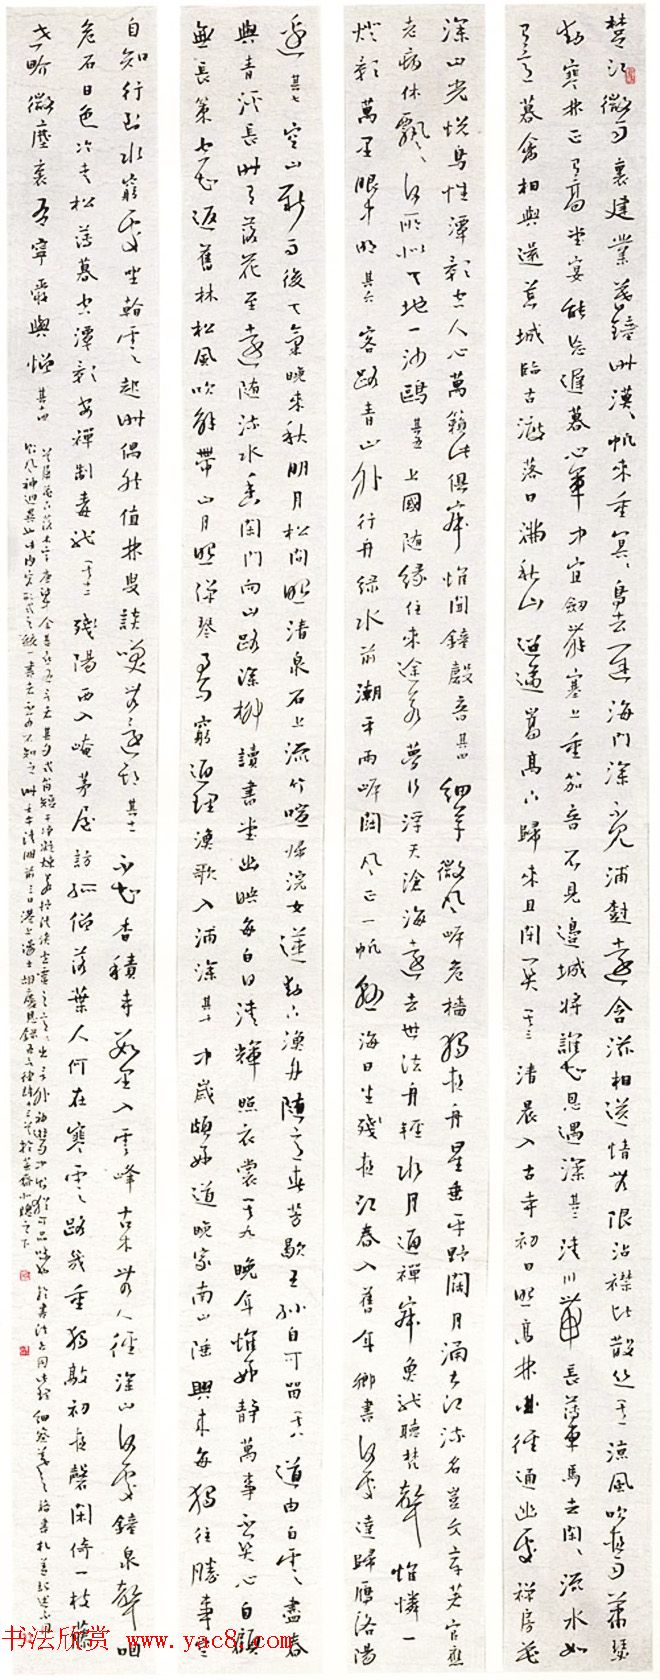 楚江微雨裏建業暮鐘時漠漠帆來重冥冥鳥去遲海門深不見浦樹遠含滋相送情無限沾襟比散絲其一涼風吹夜雨蕭瑟
動寒林正有高堂宴能忘遲暮心軍中宜劍舞塞上重笳音不見邊城將誰知恩遇深其二清川帶長薄車馬去閑閑流水如
有意暮禽相與還荒城臨古渡落日滿秋山迢遞嵩高下歸來且閉關其三清晨入古寺初日照高林曲徑通幽處禪房花
深山光悅鳥性潭影空人心萬籟此俱寂惟聞鐘磬音其四細草微風岸危檣獨夜舟星垂平野闊月湧大江流名豈文章著官應
老病休飄飄何所似天地一沙鷗其五上國隨緣住來途若夢行浮天滄海遠去世法舟輕水月通禪寂魚龍聽梵聲惟憐一
燈影萬里眼中明其六客路青山外行舟綠水前潮平兩岸闊風正一帆懸海日生殘夜江春入舊年鄉書何處達歸雁洛陽
邊其七空山新雨後天氣晚來秋明月松間照清泉石上流竹喧歸浣女蓮動下漁舟隨意春芳歇王孫自可留其八道由白雲盡春
與青溪長時有落花至遠隨流水香閑門向山路深柳讀書堂幽映每白日清輝照衣裳其九晚年惟好靜萬事不關心自顧
無長策空知返舊林松風吹解帶山月照彈琴君問窮通理漁歌入浦深其十中歲頗好道晚家南山陲興來每獨往勝事空
自知行到水窮處坐看雲起時偶然值林叟談笑無還期其十一不知香積寺數里入雲峰古木無人徑深山何處鐘泉聲咽
危石日色冷青松薄暮空潭影安禪制毒龍其十二殘陽西入崦茅屋訪孤僧落葉人何在寒雲路幾重獨敲初夜磬閑倚一枝藤
世界微塵裏吾寧愛與憎
书法欣赏 www.yac8.com